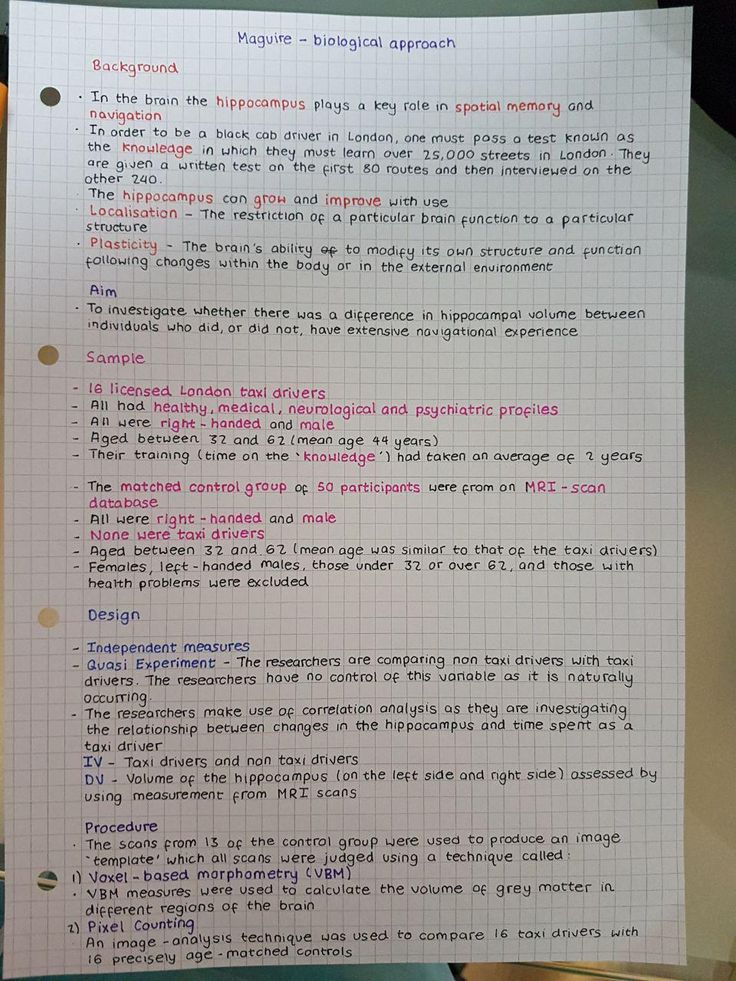 Maguire - biological approach
Background
· In the brain the hippocampus plays a key role in spatial memory and
navigation
· In order to be a black cab driver in London, one must pass a test known as
the Knowledge in which they must learn over 25,000 streets in London. They
are given a written test on the first 80 routes and then interviewed on the
other 240.
· The hippocampus can grow and improve with use
· Localisation - The restriction of a particular brain function to a particular
structure
· Plasticity - The brain's ability of to modify its own structure and function
following changes within the body or in the external environment
Aim
· To investigate whether there was a difference in hippocampal volume between
individuals who did, or did not, have extensive navigational experience
Sample
- 16 licensed London taxi drivers
- All had healthy, medical, neurological and psychiatric profiles
- All were right-handed and male
- Aged between 32 and 62 (mean age 44 years)
- Their training (time on the 'knowledge') had taken an average of 2 years
- The matched control group of 50 participants were from on MRI-scan
database
- All were right-handed and male
- None were taxi drivers
- Aged between 32 and 62 (mean age was similar to that of the taxi drivers)
- Females, left-handed males, those under 32 or over 62, and those with
health problems were excluded
Design
- Independent measures
- Quasi Experiment - The researchers are comparing non taxi drivers with taxi
drivers. The researchers have no control of this variable as it is naturally
occurring.
- The researchers make use of correlation analysis as they are investigating
the relationship between changes in the hippocampus and time spent as a
taxi driver
IV - Taxi drivers and non taxi drivers
DV - Volume of the hippocampus (on the left side and right side) assessed by
using measurement from MRI scans
Procedure
· The scans from 13 of the control group were used to produce an image
'template' which all scans were judged using a technique called:
1) Voxel-based morphometry (VBM)
· VBM measures were used to calculate the volume of grey matter in
different regions of the brain
2) Pixel Counting
An image-analysis technique was used to compare 16 taxi drivers with
16 precisely age-matched controls